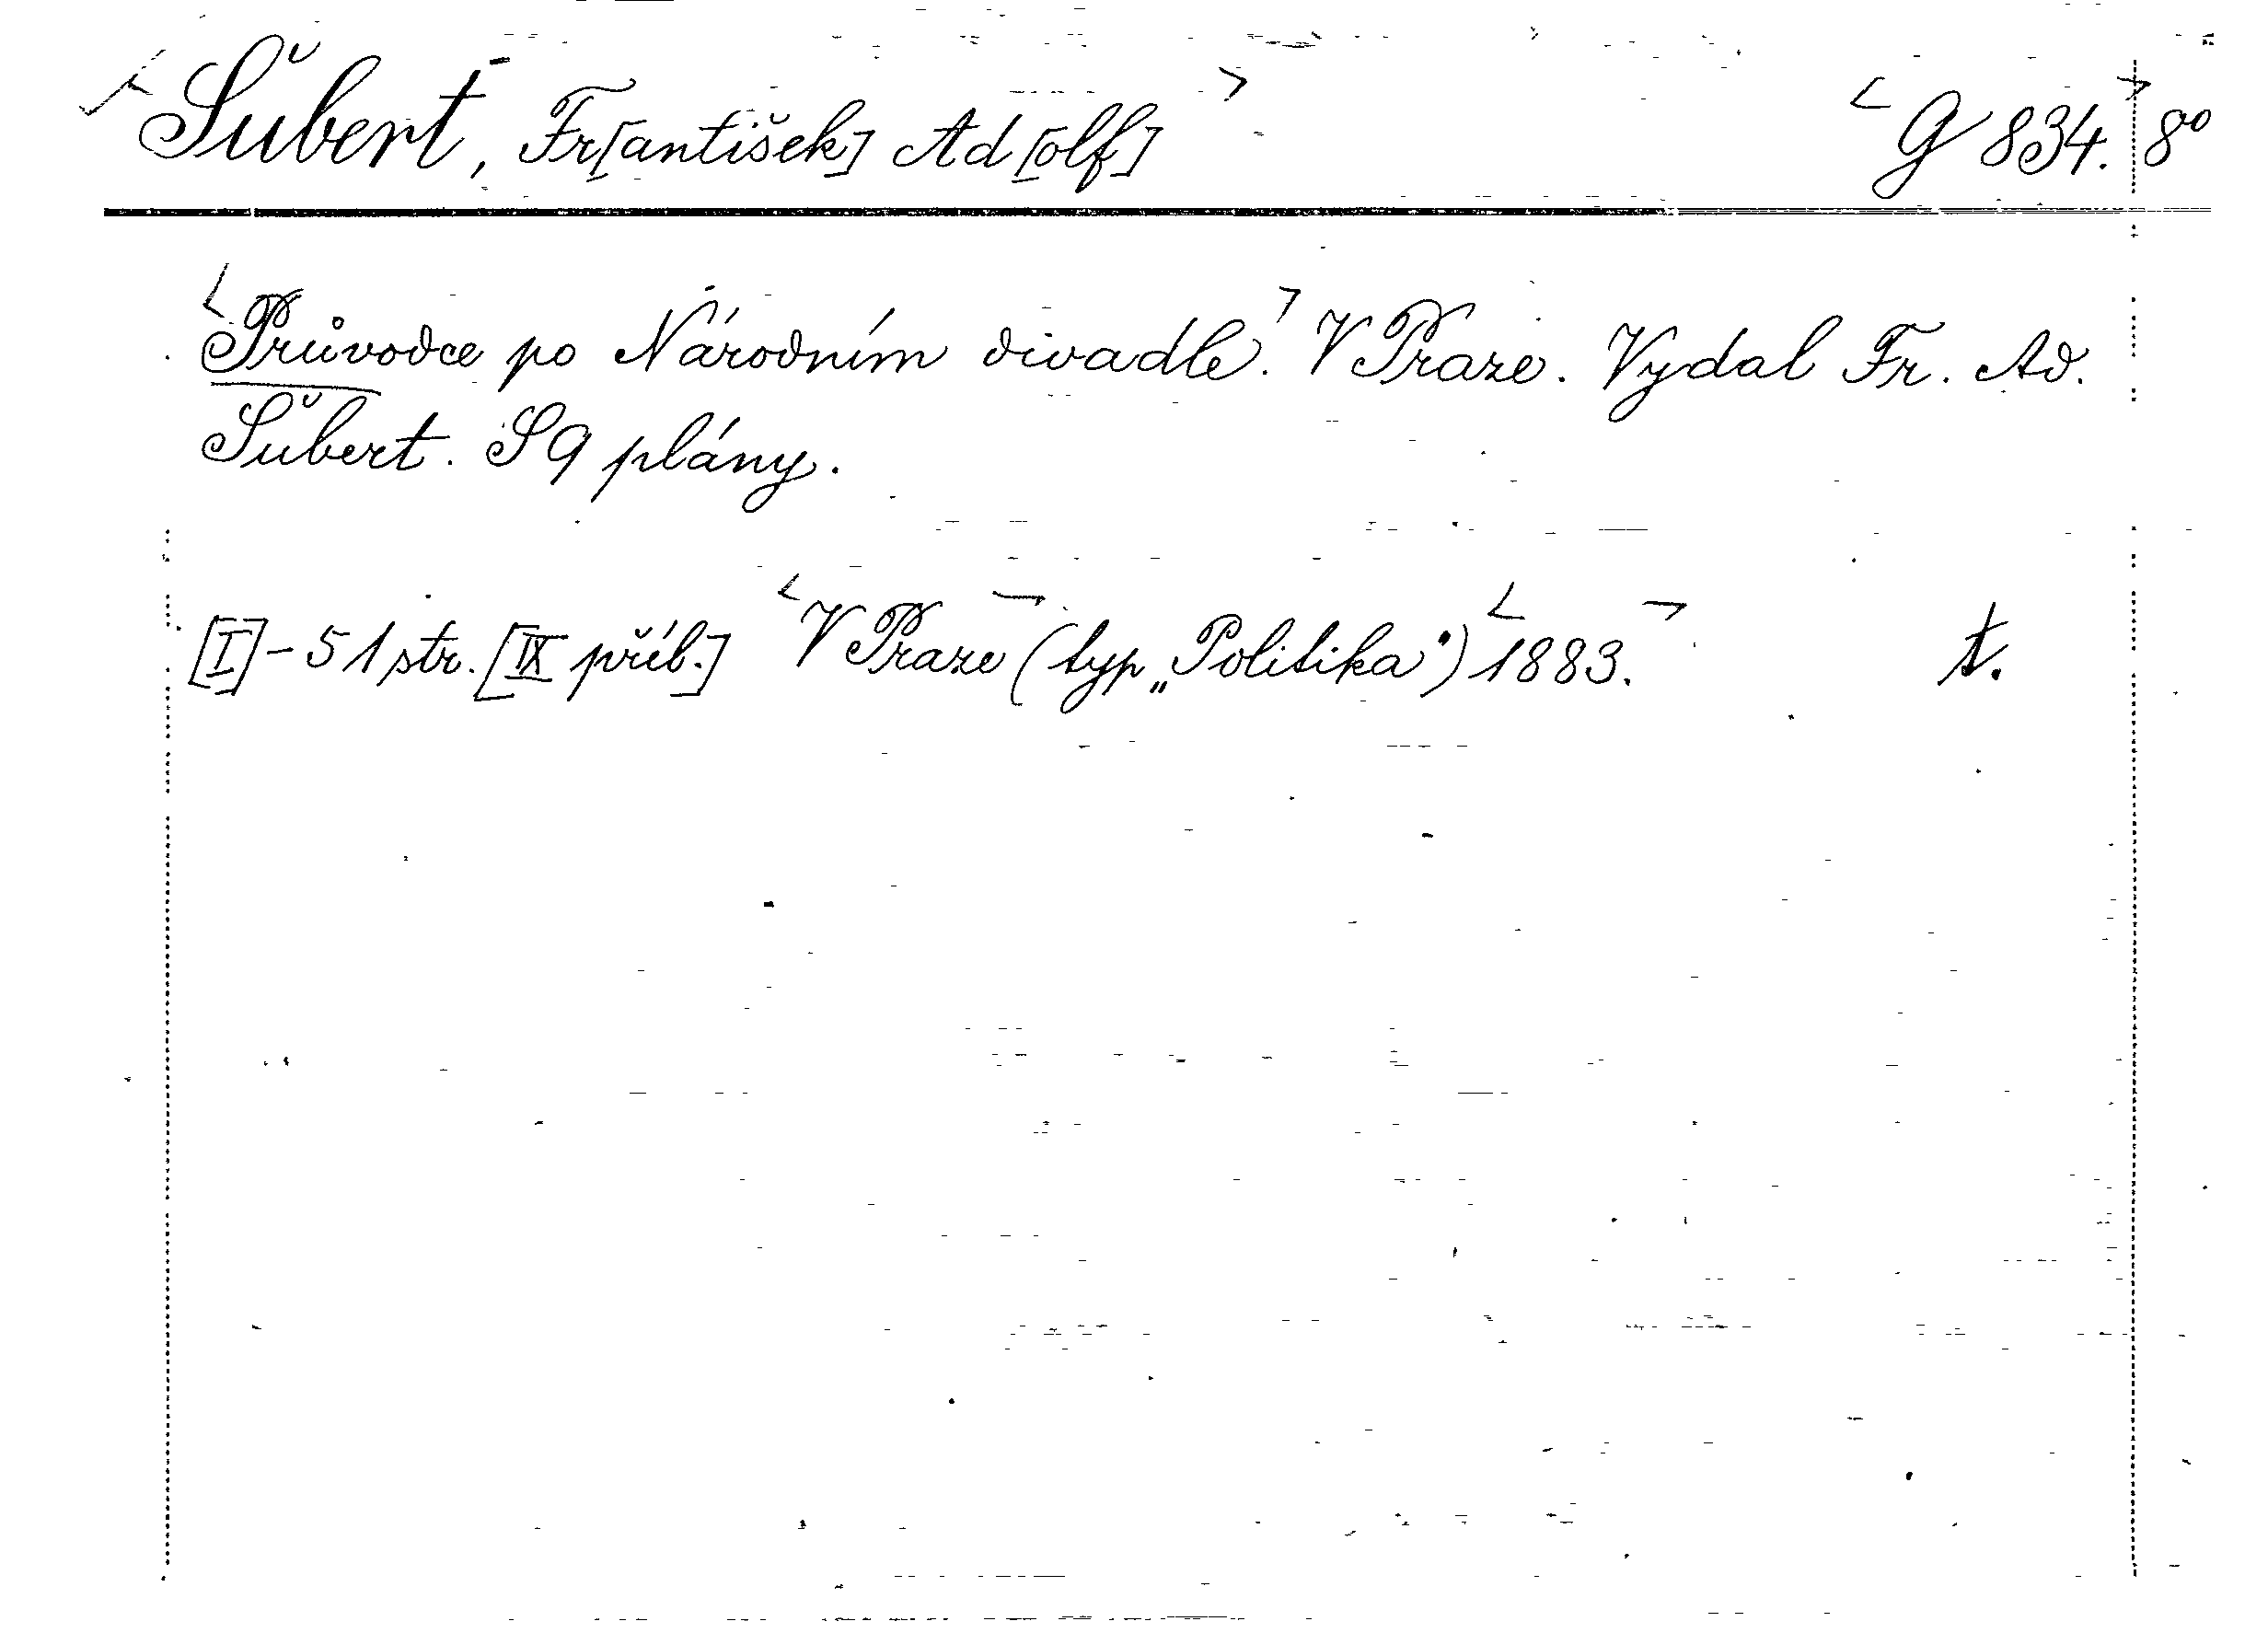 Šubert, Fr[antišek] Ad[olf] G 834. 8°
Průvodce po Národním divadle. V Praze. Vydal Fr. Ad.
Šubert. S 9 plány.
[I]-51 str. [IX příl.] V Praze (typ „Politika") 1883. t.